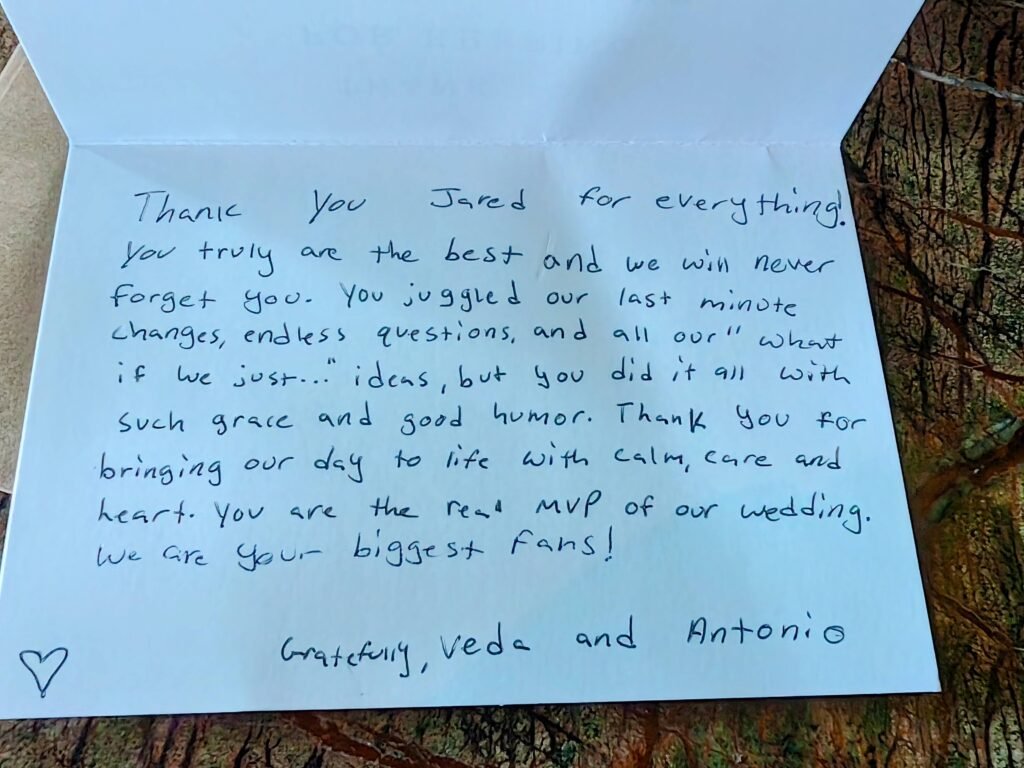 Thank You Jared for everything!
You truly are the best and we will never
forget you. You juggled our last minute
changes, endless questions, and all our "what
if we just..." ideas, but you did it all with
such grace and good humor. Thank you for
bringing our day to life with calm, care and
heart. You are the real MVP of our wedding.
We are your biggest fans!
Gratefully, Veda and Antonio